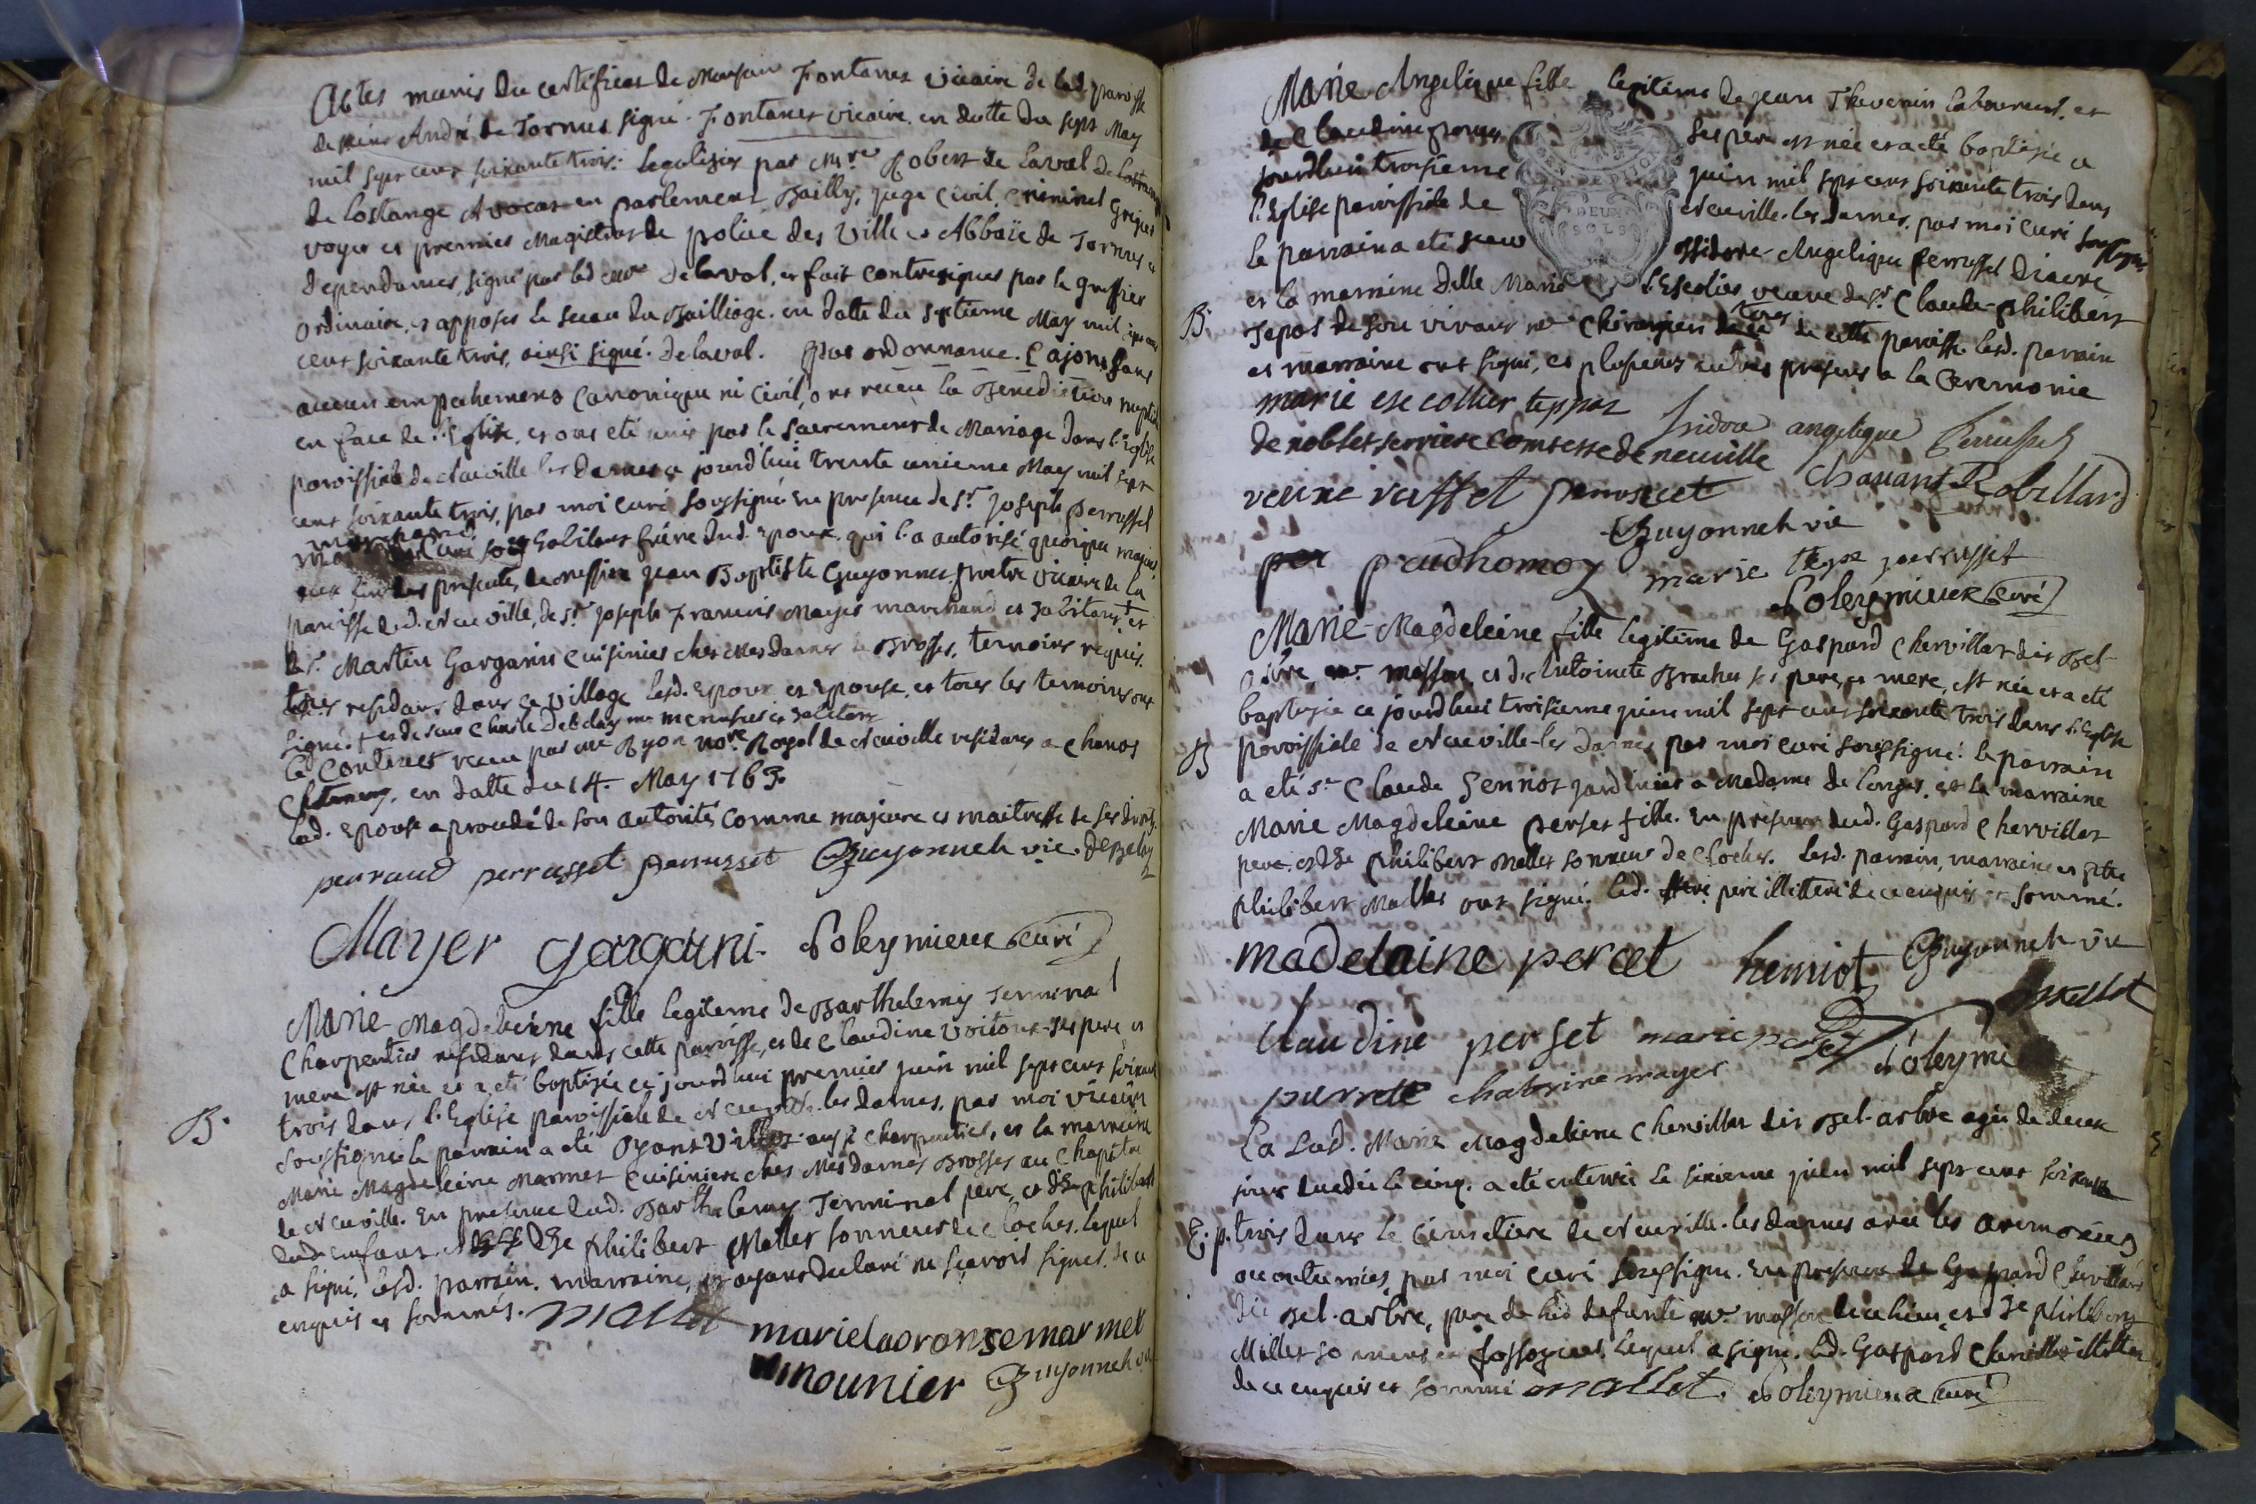 Actes munis du certificat de Monsieur Fontanes vicaire de lad. paroisse
de saint André de Tornus signé Fontanes vicaire en datte du sept May
mil sept cent soixante trois: legalizées par Mre Robert de laval
de Lostange Avocat en parlement Bailly, juge Civil, Criminel
voyer et premier Magistrat de police des Ville et Abbaïe de Tornus et
dependances, signé par led de laval, et fait contresigner par le greffier
ordinaire, et apposer le sceau du Bailliage en datte du septieme May mil sept
cent soixante trois, ainsi signé. Delaval. par ordonnance. Cajon, sans
aucun empechement Canonique ni Civil, ont receu la Benediction nuptiale
en face de l'Eglise, et ont eté unis par le Sacrement de Mariage dans l'Eglise
paroissiale de Neuville les Dames ce jourd'hui trente unieme May mil sept
cent soixante trois, par moi curé soussigné en presence de Sr Joseph Perrussel
marchand
habitant frère dud. Epoux, qui l'a autorisé quoique majeur,
de messire jean Baptiste Guyonnet pretre vicaire de la
paroisse dud. Neuville, de Sr joseph Francois Mayer marchand et habitant, et
de Sr Martin Gargarin Cuisinier chés Mesdames de Brosses, temoins requis.
tous residans dans ce village lesd. Epoux et Epouse, et tous les temoins ont
signé + et de sieur Charle Debelay
le Contract receu par me Ryon nore Royal de Neuville residant a Chanos
Chatenay, en datte du 14. May 1763.
lad. Epouse a procedé de son autorité comme majeure et maitresse de ses droits.
perraud perrusset perrusset Guyonneh vic. debelay
Mayer gargarin. Poleymieux Curé
Marie-Magdeleine fille legitime de Barthelemy Terminal
Charpentier residant dans cette paroisse, et de Claudine Voitoux ses pere et
mere est née et a eté baptisée ce jourd'hui premier juin mil sept cent soixante
B. trois dans l'Eglise paroissiale de Neuville les dames, par moi vicaire
soussigné le parrain a eté Oyant aussi Charpentier, et la marraine
Marie Magdeleine Marmet Cuisiniere chés Mesdames Brosses au Chapitre
de Neuville. En presence dud. Barthelemy Terminal pere, et
dud. enfant, philibert Mallet sonneur de Cloches, lequel
a signé, lesd. parrain, marraine, ayant declaré ne sçavoir signer, de ce
enquis et sommés. mallet
marie laoranse marmet
mounier Guyonneh vic
Marie-Angelique fille legitime de jean Thevenin laboureur, et
de Claudine ses pere est née et a eté baptisée ce
jourdhui troisieme juin mil sept cent soixante trois dans
l'Eglise paroissiale de Neuville-les Dames, par moi Curé soussigné
le parrain a eté sieur Isidore-Angelique Perrussel Diacre
et la marraine Delle Marie l'Escolier veuve de Sr Claude-philibert
B. Tepas de son vivant me Chirurgien juré de cette paroisse. lesd. parrain
et marraine ont signé, et plusieurs autres presens a la Ceremonie
DEUX SOLS
marie escollier teppaz Isidore angelique Perrussel
de noblet serriere comtesse de neuville Chanant Robillard
veuve ruffet perrusset
Guyonneh vic
per prudhomoz marie perrusset
Poleymieux Curé
Marie-Magdeleine fille legitime de Gaspard Chervillar dis Bel-
arbre me masson et de Antoinete Brachet ses pere et mere, est née et a eté
baptizée ce jourdhui troisieme juin mil sept cent soixante trois dans l'Eglise
B paroissiale de Neuville-les Dames par moi curé soussigné. le parrain
a eté Sr Claude Henriot jardinier a Madame de Longes, et la marraine
Marie Magdeleine Perset fille. En presence dud. Gaspard Chervillar
pere, et de philibert Mallet sonneur de Cloches. Lesd. parrain, marraine et
philibert Mallet ont signé. led. pere illitteré de ce enquis et sommé.
madelaine percet henriot Guyonneh vic
mallet
Claudine perset marie perset Poleymi
perrete chaterine mayer
La sud. Marie Magdeleine Chervillar dis Bel-arbre agée de deux
jours decedée le cinq. a eté enterrée le sixieme juin mil sept cent soixante
E. p. trois dans le Cimetiere de Neuville-les Dames avec les ceremonies
accoutumées, par moi curé soussigné. En presence de Gaspard Chervillar
dis Bel-arbre, pere de lad. defunte me masson de ce lieu, et de philibert
Mallet sonneur et fossoyeur, lequel a signé. led. Gaspard Chervillar illitteré
de ce enquis et sommé mallet. Poleymieux curé